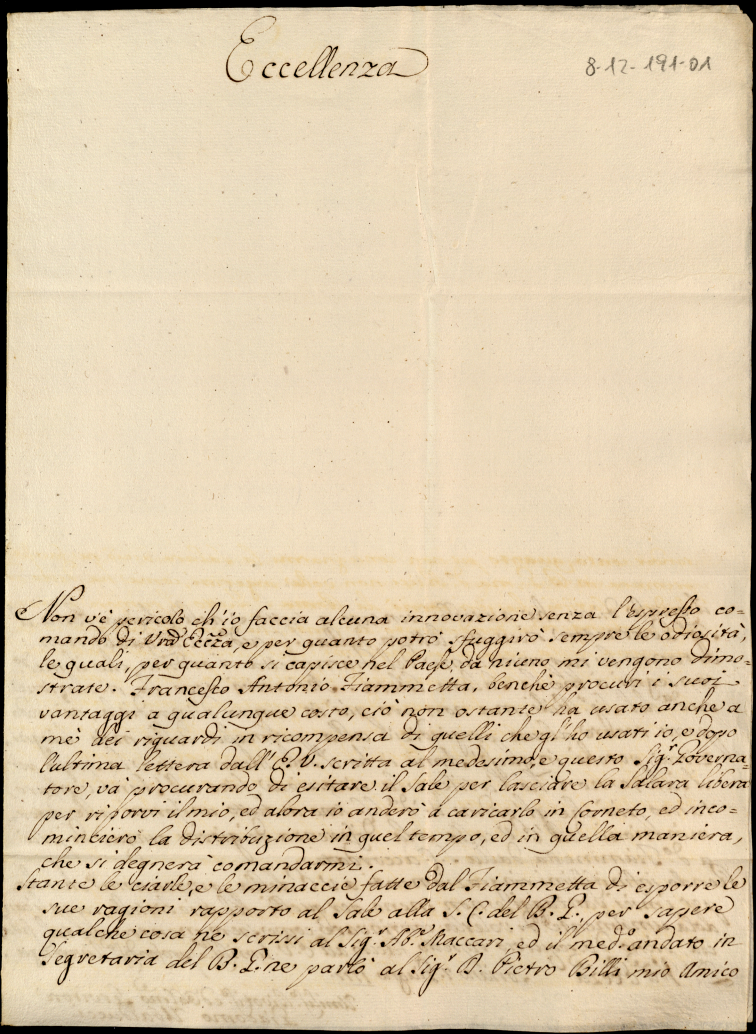 Eccellenza
8-12-191-01
Non v'è pericolo ch'io faccia alcuna innovazione senza l'espresso co=
mando di Vrã Eccza, e per quanto potrò sfuggirò sempre le odiosità,
le quali, per quanto si capisce nel Paese, da niuno mi vengono dimo=
strate. Francesco Antonio Fiammetta, benchè procuri i suoi
vantaggi a qualunque costo, ciò non ostante ha usato anche a
mè dei riguardi in ricompensa di quelli che gl'ho usati io, e dopo
l'ultima lettera dall'E.V. scritta al medesimo, e questo Sigr. Governa=
tore, và procurando di esitare il Sale per lasciare la Salara libera
per riporvi il mio, ed alora io anderò à caricarlo in Corneto, ed inco=
minciero la distribuzione in quel tempo, ed in quella maniera,
che si degnerà comandarmi.
Stante le ciarle, e le minaccie fatte dal Fiammetta di esporre le
sue ragioni rapporto al Sale alla S. C. del B. G. per sapere
qualche cosa ne scrissi al Sigr. Maccari, ed il medo. andato in
Segretaria del B. G. ne parlò al Sigr. D. Pietro Billi mio Amico